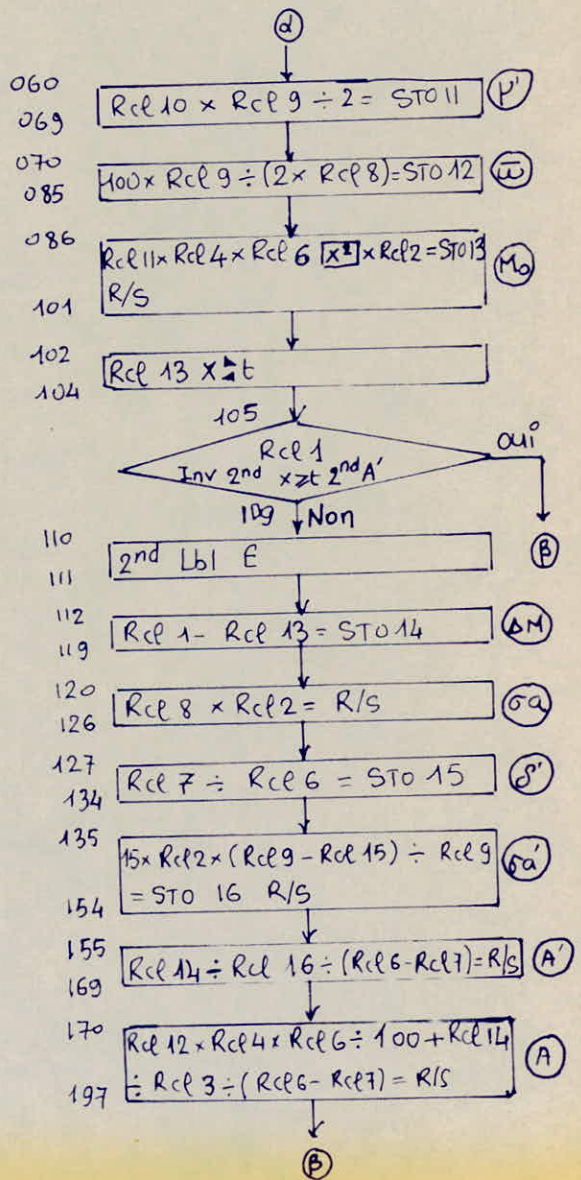 α
060
069
Rcl 10 × Rcl 9 ÷ 2 = STO 11
μ'
070
085
100 × Rcl 9 ÷ (2 × Rcl 8) = STO 12
ϖ
086
101
Rcl 11 × Rcl 4 × Rcl 6 x² × Rcl 2 = STO 13
R/S
M₀
102
104
Rcl 13 x⇄t
105
Rcl 1
Inv 2nd x≥t 2nd A'
oui
109 Non
β
110
111
2nd Lbl E
112
119
Rcl 1 - Rcl 13 = STO 14
ΔM
120
126
Rcl 8 × Rcl 2 = R/S
σa
127
134
Rcl 7 ÷ Rcl 6 = STO 15
δ'
135
154
15 × Rcl 2 × (Rcl 9 - Rcl 15) ÷ Rcl 9
= STO 16 R/S
σa'
155
169
Rcl 14 ÷ Rcl 16 ÷ (Rcl 6 - Rcl 7) = R/S
A'
170
197
Rcl 12 × Rcl 4 × Rcl 6 ÷ 100 + Rcl 14
÷ Rcl 3 ÷ (Rcl 6 - Rcl 7) = R/S
A
β